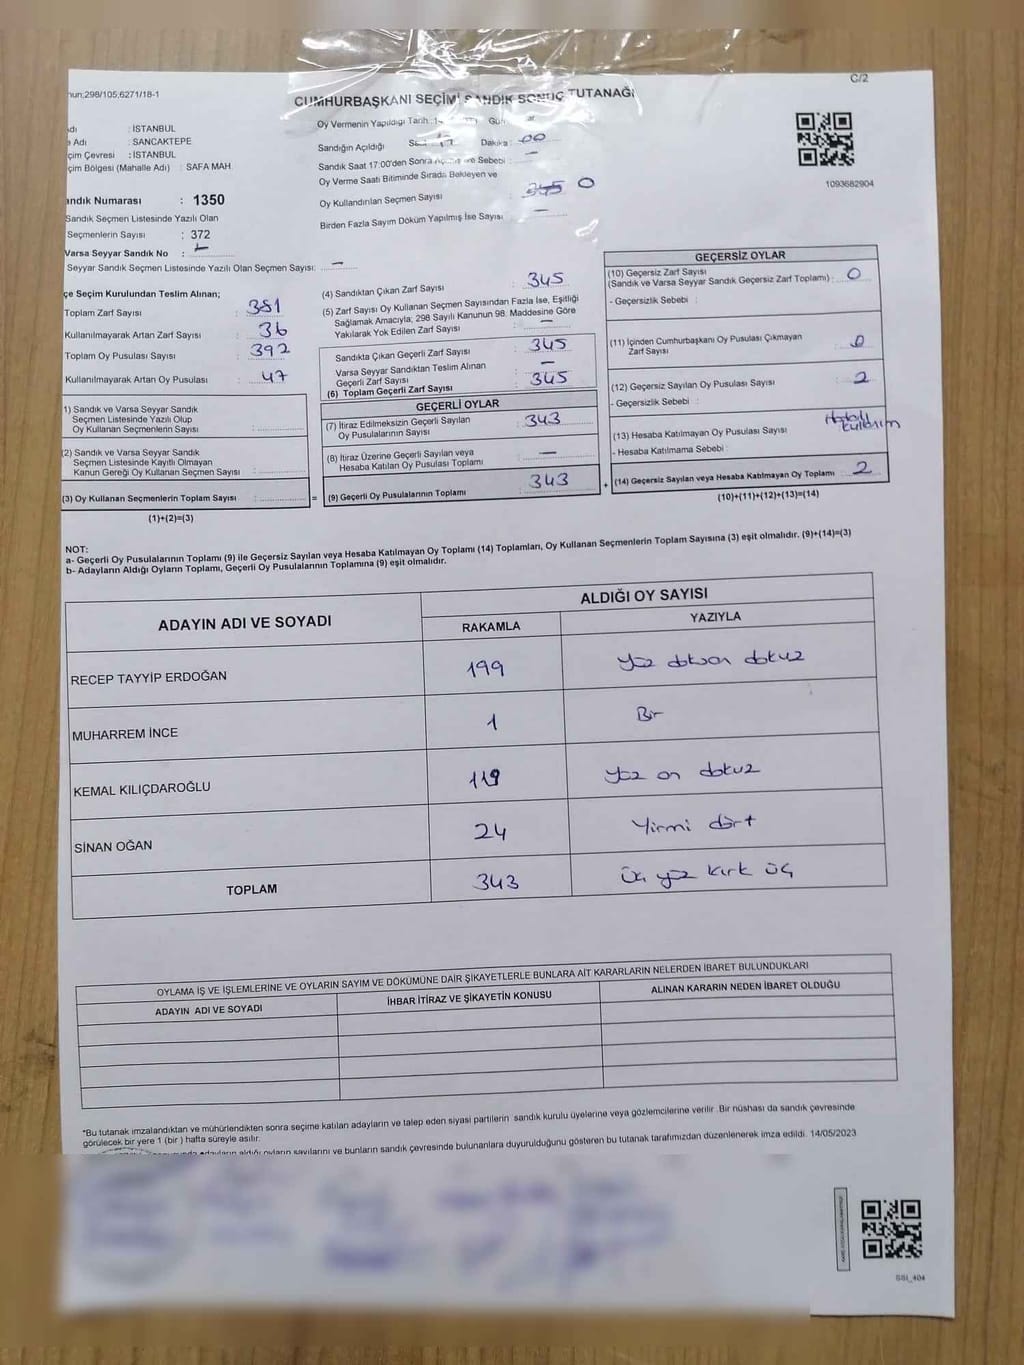 C/2
nun;298/105,6271/18-1
CUMHURBAŞKANI SEÇİMİ SANDIK SONUÇ TUTANAĞI
dı : İSTANBUL
Adı : SANCAKTEPE
çim Çevresi : İSTANBUL
çim Bölgesi (Mahalle Adı) : SAFA MAH
andık Numarası : 1350
Sandık Seçmen Listesinde Yazılı Olan
Seçmenlerin Sayısı : 372
Varsa Seyyar Sandık No : -
Seyyar Sandık Seçmen Listesinde Yazılı Olan Seçmen Sayısı: -
Oy Vermenin Yapıldığı Tarih :
Sandığın Açıldığı Dakika : 00
Sandık Saat 17:00'den Sonra Sebebi : -
Oy Verme Saati Bitiminde Sırada Bekleyen ve
Oy Kullandırılan Seçmen Sayısı : 345 0
Birden Fazla Sayım Döküm Yapılmış İse Sayısı : -
1093682904
çe Seçim Kurulundan Teslim Alınan;
Toplam Zarf Sayısı : 381
Kullanılmayarak Artan Zarf Sayısı : 36
Toplam Oy Pusulası Sayısı : 392
Kullanılmayarak Artan Oy Pusulası : 47
1) Sandık ve Varsa Seyyar Sandık
Seçmen Listesinde Yazılı Olup
Oy Kullanan Seçmenlerin Sayısı :
(2) Sandık ve Varsa Seyyar Sandık
Seçmen Listesinde Kayıtlı Olmayan
Kanun Gereği Oy Kullanan Seçmen Sayısı :
(3) Oy Kullanan Seçmenlerin Toplam Sayısı : =
(1)+(2)=(3)
(4) Sandıktan Çıkan Zarf Sayısı : 345
(5) Zarf Sayısı Oy Kullanan Seçmen Sayısından Fazla İse, Eşitliği
Sağlamak Amacıyla; 298 Sayılı Kanunun 98. Maddesine Göre
Yakılarak Yok Edilen Zarf Sayısı : -
Sandıkta Çıkan Geçerli Zarf Sayısı : 345
Varsa Seyyar Sandıktan Teslim Alınan
Geçerli Zarf Sayısı : -
(6) Toplam Geçerli Zarf Sayısı : 345
GEÇERLİ OYLAR
(7) İtiraz Edilmeksizin Geçerli Sayılan
Oy Pusulalarının Sayısı : 343
(8) İtiraz Üzerine Geçerli Sayılan veya
Hesaba Katılan Oy Pusulası Toplamı : -
(9) Geçerli Oy Pusulalarının Toplamı : 343 +
GEÇERSİZ OYLAR
(10) Geçersiz Zarf Sayısı
(Sandık ve Varsa Seyyar Sandık Geçersiz Zarf Toplamı) : 0
- Geçersizlik Sebebi :
(11) İçinden Cumhurbaşkanı Oy Pusulası Çıkmayan
Zarf Sayısı : 0
(12) Geçersiz Sayılan Oy Pusulası Sayısı : 2
- Geçersizlik Sebebi :
Hatalı
kullanım
(13) Hesaba Katılmayan Oy Pusulası Sayısı
- Hesaba Katılmama Sebebi :
(14) Geçersiz Sayılan veya Hesaba Katılmayan Oy Toplamı : 2
(10)+(11)+(12)+(13)=(14)
NOT:
a- Geçerli Oy Pusulalarının Toplamı (9) ile Geçersiz Sayılan veya Hesaba Katılmayan Oy Toplamı (14) Toplamları, Oy Kullanan Seçmenlerin Toplam Sayısına (3) eşit olmalıdır. (9)+(14)=(3)
b- Adayların Aldığı Oyların Toplamı, Geçerli Oy Pusulalarının Toplamına (9) eşit olmalıdır.
ADAYIN ADI VE SOYADI
ALDIĞI OY SAYISI
RAKAMLA YAZIYLA
RECEP TAYYİP ERDOĞAN 199 yüz doksan dokuz
MUHARREM İNCE 1 Bir
KEMAL KILIÇDAROĞLU 119 yüz on dokuz
SİNAN OĞAN 24 Yirmi dört
TOPLAM 343 üç yüz kırk üç
OYLAMA İŞ VE İŞLEMLERİNE VE OYLARIN SAYIM VE DÖKÜMÜNE DAİR ŞİKAYETLERLE BUNLARA AİT KARARLARIN NELERDEN İBARET BULUNDUKLARI
ADAYIN ADI VE SOYADI İHBAR İTİRAZ VE ŞİKAYETİN KONUSU ALINAN KARARIN NEDEN İBARET OLDUĞU
*Bu tutanak imzalandıktan ve mühürlendikten sonra seçime katılan adayların ve talep eden siyasi partilerin sandık kurulu üyelerine veya gözlemcilerine verilir. Bir nüshası da sandık çevresinde
görülecek bir yere 1 (bir) hafta süreyle asılır.
adayların aldığı oyların sayılarını ve bunların sandık çevresinde bulunanlara duyurulduğunu gösteren bu tutanak tarafımızdan düzenlenerek imza edildi. 14/05/2023
SSI_404